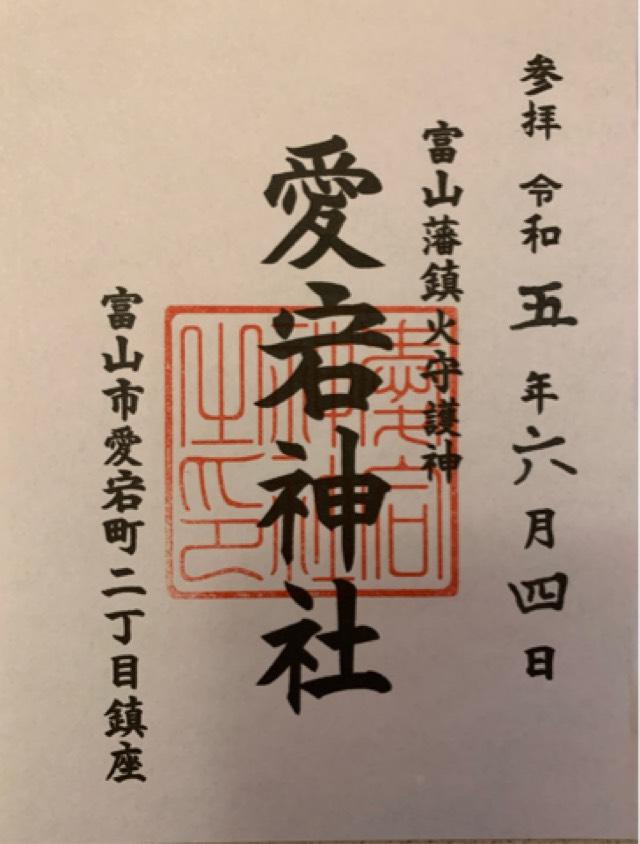 参拝 令和五年六月四日
富山藩鎮火守護神
愛宕神社
富山市愛宕町二丁目鎮座
愛宕
神社
之印